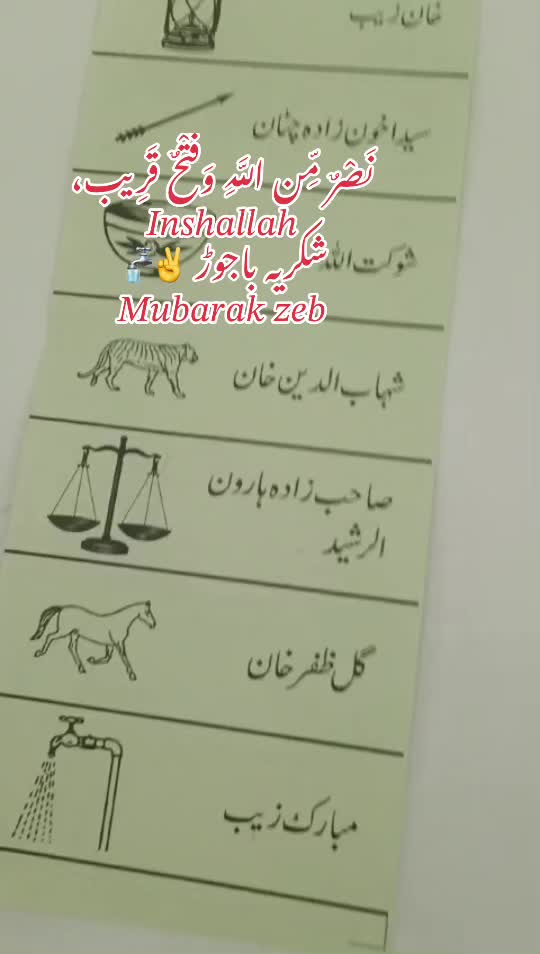 خان زیب
سید اخون زادہ چٹان
نَصْرٌ مِّن اللَّهِ وَفَتْحٌ قَرِيب،
Inshallah
شوکت اللہ
شکریہ باجوڑ ✌️🚰
Mubarak zeb
شہاب الدین خان
صاحبزادہ ہارون
الرشید
گل ظفر خان
مبارک زیب